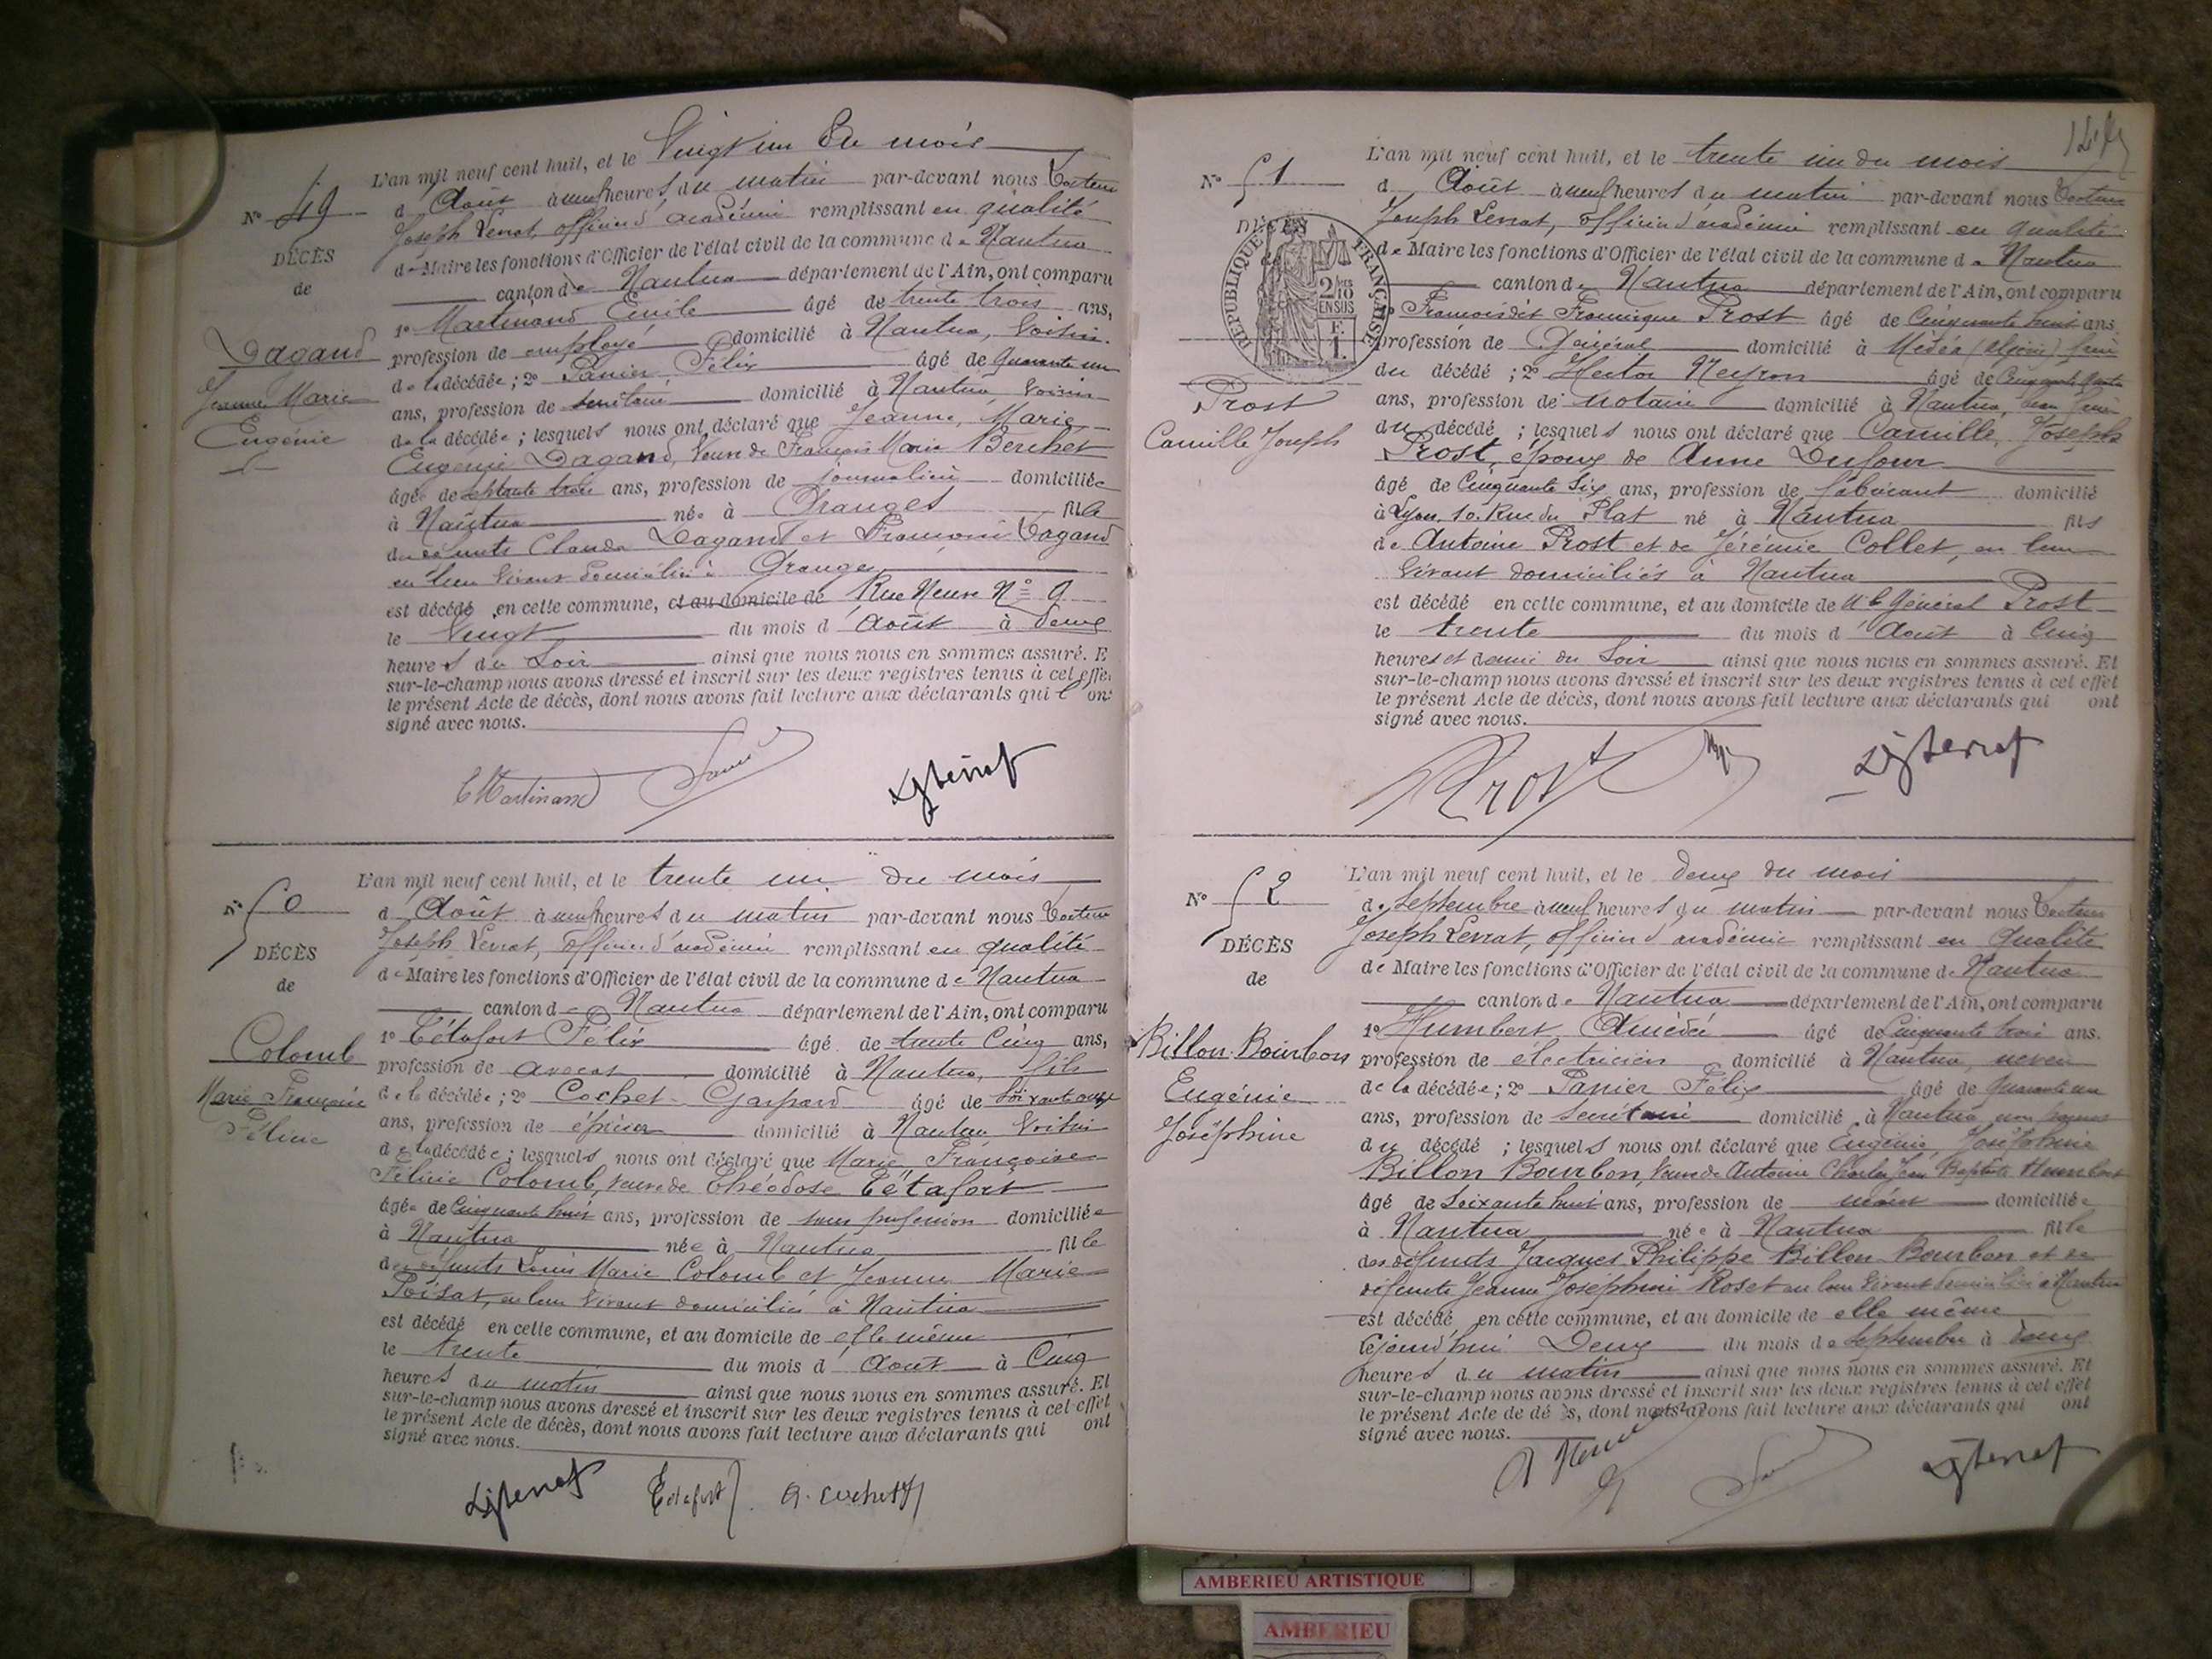 L'an mil neuf cent huit, et le Vingt un du mois
d'Août à neuf heures du matin par-devant nous Docteur
Joseph Levrat, officier d'académie remplissant en qualité
de Maire les fonctions d'Officier de l'état civil de la commune de Nantua
canton de Nantua département de l'Ain, ont comparu
1º Martinand Emile âgé de trente trois ans,
profession de employé domicilié à Nantua, voisin
de la décédée; 2º Panier Félix âgé de quarante un
ans, profession de secrétaire domicilié à Nantua voisin
de la décédée; lesquels nous ont déclaré que Jeanne, Marie
Eugénie Dagand, Veuve de François Marie Berchet
âgée de septante trois ans, profession de journalière domiciliée
à Nantua née à Granges fille
de défunts Claude Dagand et Françoise Dagand
en leur vivant domiciliés à Granges
est décédé en cette commune, et au domicile de Rue Neuve Nº 9
le Vingt du mois d'Août à deux
heures du soir ainsi que nous nous en sommes assuré. E
sur-le-champ nous avons dressé et inscrit sur les deux registres tenus à cet effet
le présent Acte de décès, dont nous avons fait lecture aux déclarants qui l'ont
signé avec nous.
Nº 49
DÉCÈS
de
Dagand
Jeanne Marie
Eugénie
E Martinand
L'an mil neuf cent huit, et le trente un du mois
d'Août à neuf heures du matin par-devant nous Docteur
Joseph Levrat, officier d'académie remplissant en qualité
de Maire les fonctions d'Officier de l'état civil de la commune de Nantua
canton de Nantua département de l'Ain, ont comparu
1º Tétafort Félix âgé de trente cinq ans,
profession de avocat domicilié à Nantua, fils
de la décédée; 2º Cochet Gaspard âgé de soixante onze
ans, profession de épicier domicilié à Nantua voisin
de la décédée; lesquels nous ont déclaré que Marie Françoise
Félicie Colomb, veuve de Théodose Tétafort
âgée de cinquante huit ans, profession de sans profession domiciliée
à Nantua née à Nantua fille
de défunts Louis Marie Colomb et Jeanne Marie
Poisat, en leur vivant domiciliés à Nantua
est décédé en cette commune, et au domicile de elle même
le trente du mois d'Août à cinq
heures du matin ainsi que nous nous en sommes assuré. Et
sur-le-champ nous avons dressé et inscrit sur les deux registres tenus à cet effet
le présent Acte de décès, dont nous avons fait lecture aux déclarants qui ont
signé avec nous.
Nº 50
DÉCÈS
de
Colomb
Marie Françoise
Félicie
Tétafort
L'an mil neuf cent huit, et le trente un du mois
d'Août à neuf heures du matin par-devant nous Docteur
Joseph Levrat, officier d'académie remplissant en qualité
de Maire les fonctions d'Officier de l'état civil de la commune de Nantua
canton de Nantua département de l'Ain, ont comparu
François dit Francisque Prost âgé de cinquante huit ans
profession de Général domicilié à Médéa (algérie) frère
du décédé; 2º Hector Neyron âgé de cinquante quatre
ans, profession de notaire domicilié à Nantua, beau frère
du décédé; lesquels nous ont déclaré que Camille, Joseph
Prost, époux de Anne Dufour
âgé de cinquante six ans, profession de fabricant domicilié
à Lyon, 10. Rue du Plat né à Nantua fils
de Antoine Prost et de Jérémie Collet, en leur
vivant domiciliés à Nantua
est décédé en cette commune, et au domicile de Mr le Général Prost
le trente du mois d'Août à cinq
heures et demie du soir ainsi que nous nous en sommes assuré. Et
sur-le-champ nous avons dressé et inscrit sur les deux registres tenus à cet effet
le présent Acte de décès, dont nous avons fait lecture aux déclarants qui ont
signé avec nous.
Nº 51
DÉCÈS
RÉPUBLIQUE FRANÇAISE
2/10
EN SUS
Prost
Camille Joseph
Prost
L'an mil neuf cent huit, et le deux du mois
de septembre à neuf heures du matin par-devant nous Docteur
Joseph Levrat, officier d'académie remplissant en qualité
de Maire les fonctions d'Officier de l'état civil de la commune de Nantua
canton de Nantua département de l'Ain, ont comparu
1º Humbert Amédée âgé de cinquante trois ans.
profession de électricien domicilié à Nantua, neveu
de la décédée; 2º Panier Félix âgé de quarante un
ans, profession de secrétaire domicilié à Nantua non parent
du décédé; lesquels nous ont déclaré que Eugénie, Joséphine
Billon Bourbon, Veuve de Antoine Charles Jean Baptiste Humbert
âgé de soixante huit ans, profession de néant domiciliée
à Nantua née à Nantua fille
des défunts Jacques Philippe Billon Bourbon et de
défunte Jeanne Joséphine Roset en leur vivant domiciliés à Nantua
est décédé en cette commune, et au domicile de elle même
lejourd'hui Deux du mois de septembre à deux
heures du matin ainsi que nous nous en sommes assuré. Et
sur-le-champ nous avons dressé et inscrit sur les deux registres tenus à cet effet
le présent Acte de décès, dont nous avons fait lecture aux déclarants qui ont
signé avec nous.
Nº 52
DÉCÈS
de
Billon-Bourbon
Eugénie
Joséphine
AMBERIEU ARTISTIQUE
AMBERIEU